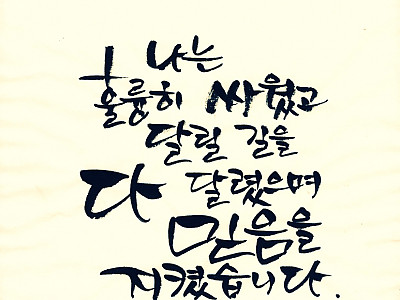 나는
훌륭히 싸웠고
달릴 길을
다 달렸으며
믿음을
지켰습니다.